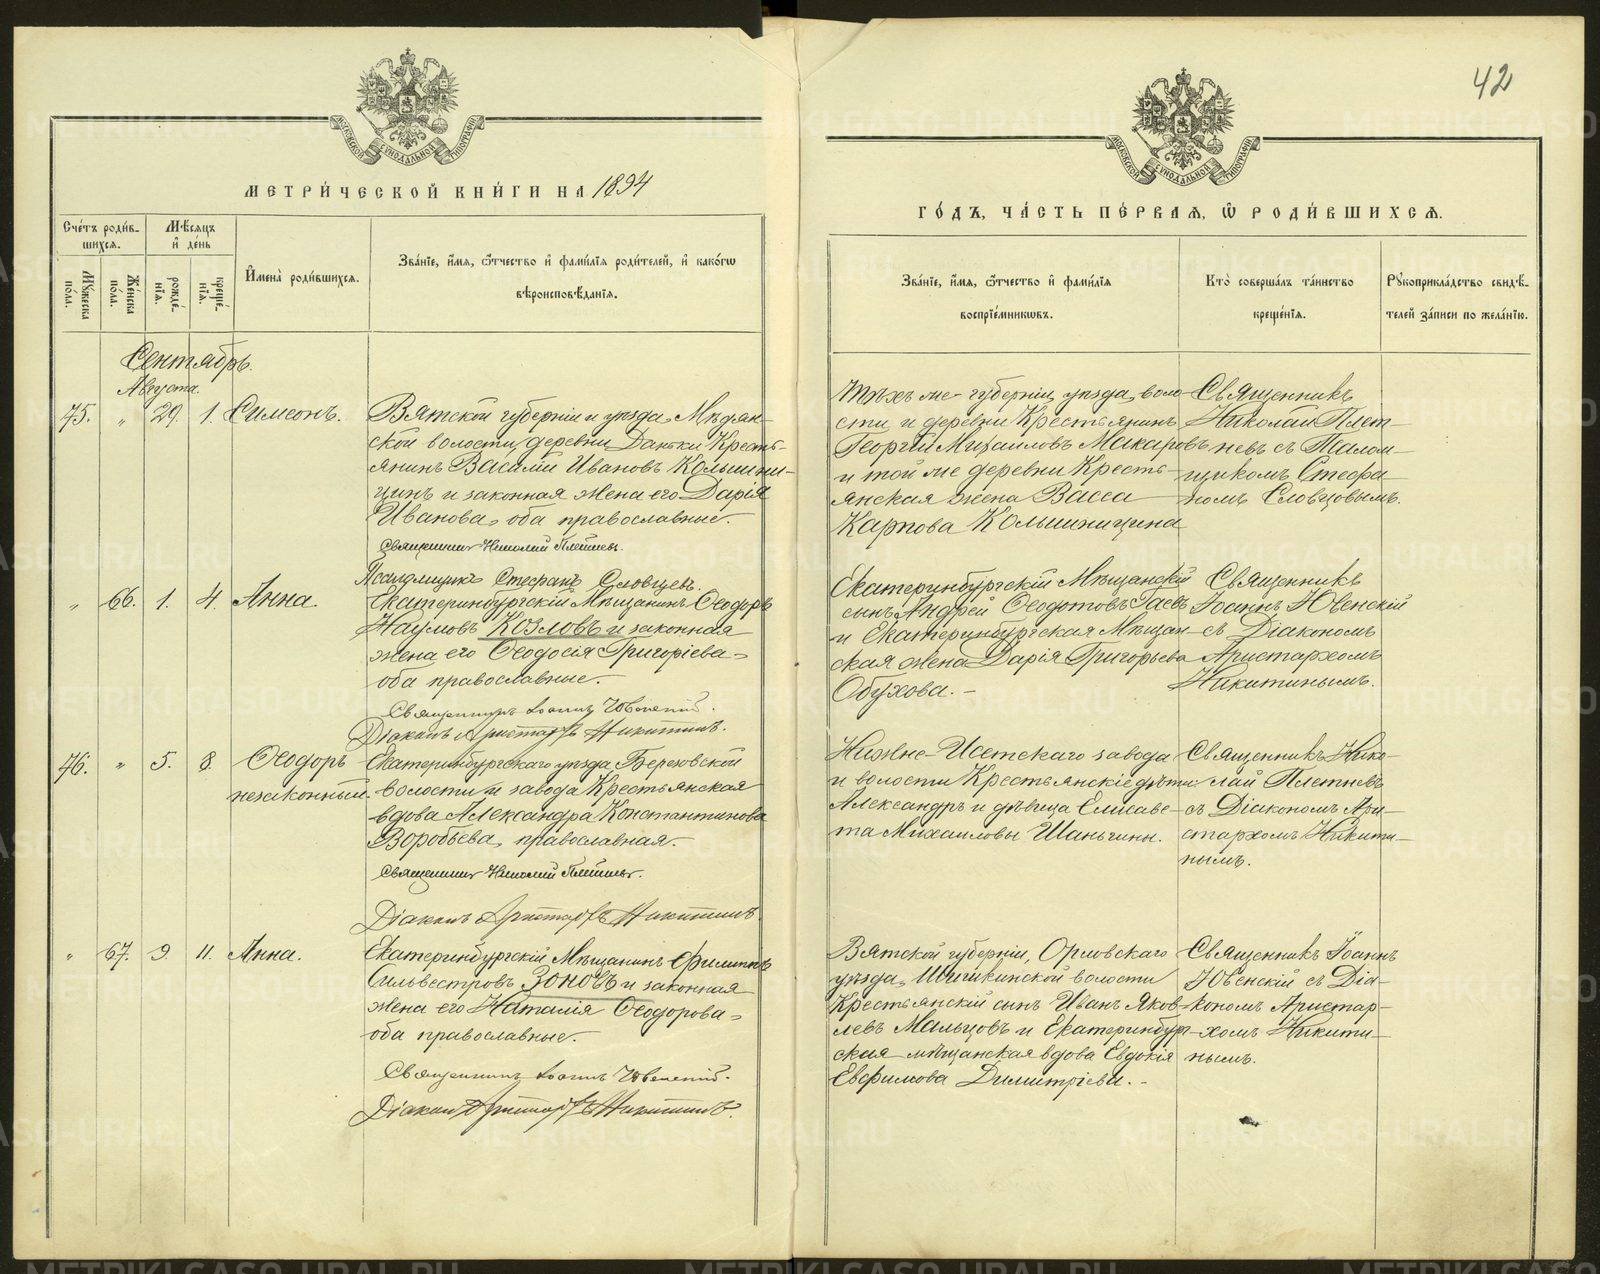 42
МОСКОВСКОЙ СѴНОДАЛЬНОЙ ТИПОГРАФІИ
МОСКОВСКОЙ СѴНОДАЛЬНОЙ ТИПОГРАФІИ
МЕТРИ́ЧЕСКОЙ КНИ́ГИ НА 1894
ГО́ДЪ, ЧА́СТЬ ПЕ́РВАЯ, Ѿ РОДИ́ВШИХСѦ.
Сче́тъ роди́в-
шихся.
Мѣсяцъ
и́ де́нь
Мꙋ́жеска
по́ла.
Же́нска
по́ла.
рожде́-
нїя.
креще́-
нїя.
И҆мена̀ роди́вшихся.
Зва́нїе, и҆́мя, ѻ҆́тчество и҆ фами́лїя роди́телей, и҆ како́гѡ
вѣроисповѣ́данїя.
Зва́нїе, и҆́мя, ѻ҆́тчество и҆ фами́лїя
воспрїе́мникѡвъ.
Кто̀ соверша́лъ та́инство
креще́нїя.
Рꙋкоприкла́дство свидѣ́-
телей за́писи по жела́нїю.
Сентябрь.
Августа.
75. „ 29. 1. Симеонъ.
Вятской губерніи и уѣзда, Мѣдян-
ской волости, деревни Даньки Кресть-
янинъ Василій Ивановъ
и законная жена его Дарія
Иванова, оба православные.
Священникъ Николай Плетневъ.
Псаломщикъ Стефанъ Словцевъ.
Тѣхъ же губерніи, уѣзда, воло-
сти и деревни Крестьянинъ
Георгій Михаиловъ Макаровъ
и той же деревни Кресть-
янская жена Васса
Карпова
Священникъ
Николай Плет-
невъ съ Псалом-
щикомъ Стефа-
номъ Словцовымъ.
„ 66. 1. 4. Анна.
Екатеринбургскій Мѣщанинъ Ѳеодоръ
Наумовъ Козловъ и законная
жена его Ѳеодосія Григоріева,
оба православные.
Священникъ Іоаннъ Ювенскій.
Діаконъ Аристархъ Никитинъ.
Екатеринбургскій Мѣщанскій
сынъ Андрей Ѳеодотовъ Гаевъ
и Екатеринбургская Мѣщан-
ская жена Дарія Григорьева
Обухова.
Священникъ
Іоаннъ Ювенскій
съ Діакономъ
Аристархомъ
Никитинымъ.
76. „ 5. 8. Ѳеодоръ
незаконный.
Екатеринбургскаго уѣзда, Березовской
волости и завода Крестьянская
вдова Александра Константинова
Воробьева, православная.
Священникъ Николай Плетневъ.
Діаконъ Аристархъ Никитинъ.
Нижне-Исетскаго завода
и волости Крестьянскіе дѣти
Александръ и дѣвица Елисаве-
та Михаиловы Шаньгины.
Священникъ Нико-
лай Плетневъ
съ Діакономъ Ари-
стархомъ Никити-
нымъ.
„ 67. 9. 11. Анна.
Екатеринбургскій Мѣщанинъ Филиппъ
Сильвестровъ Зоновъ и законная
жена его Наталія Ѳеодорова,
оба православные.
Священникъ Іоаннъ Ювенскій.
Діаконъ Аристархъ Никитинъ.
Вятской губерніи, Орловскаго
уѣзда, волости
Крестьянскій сынъ Иванъ Яков-
левъ Мальцовъ и Екатеринбург-
ская мѣщанская вдова Евдокія
Евфимова Димитріева.
Священникъ Іоаннъ
Ювенскій съ Діа-
кономъ Аристар-
хомъ Никити-
нымъ.
METRIKI.GASO-URAL.RU